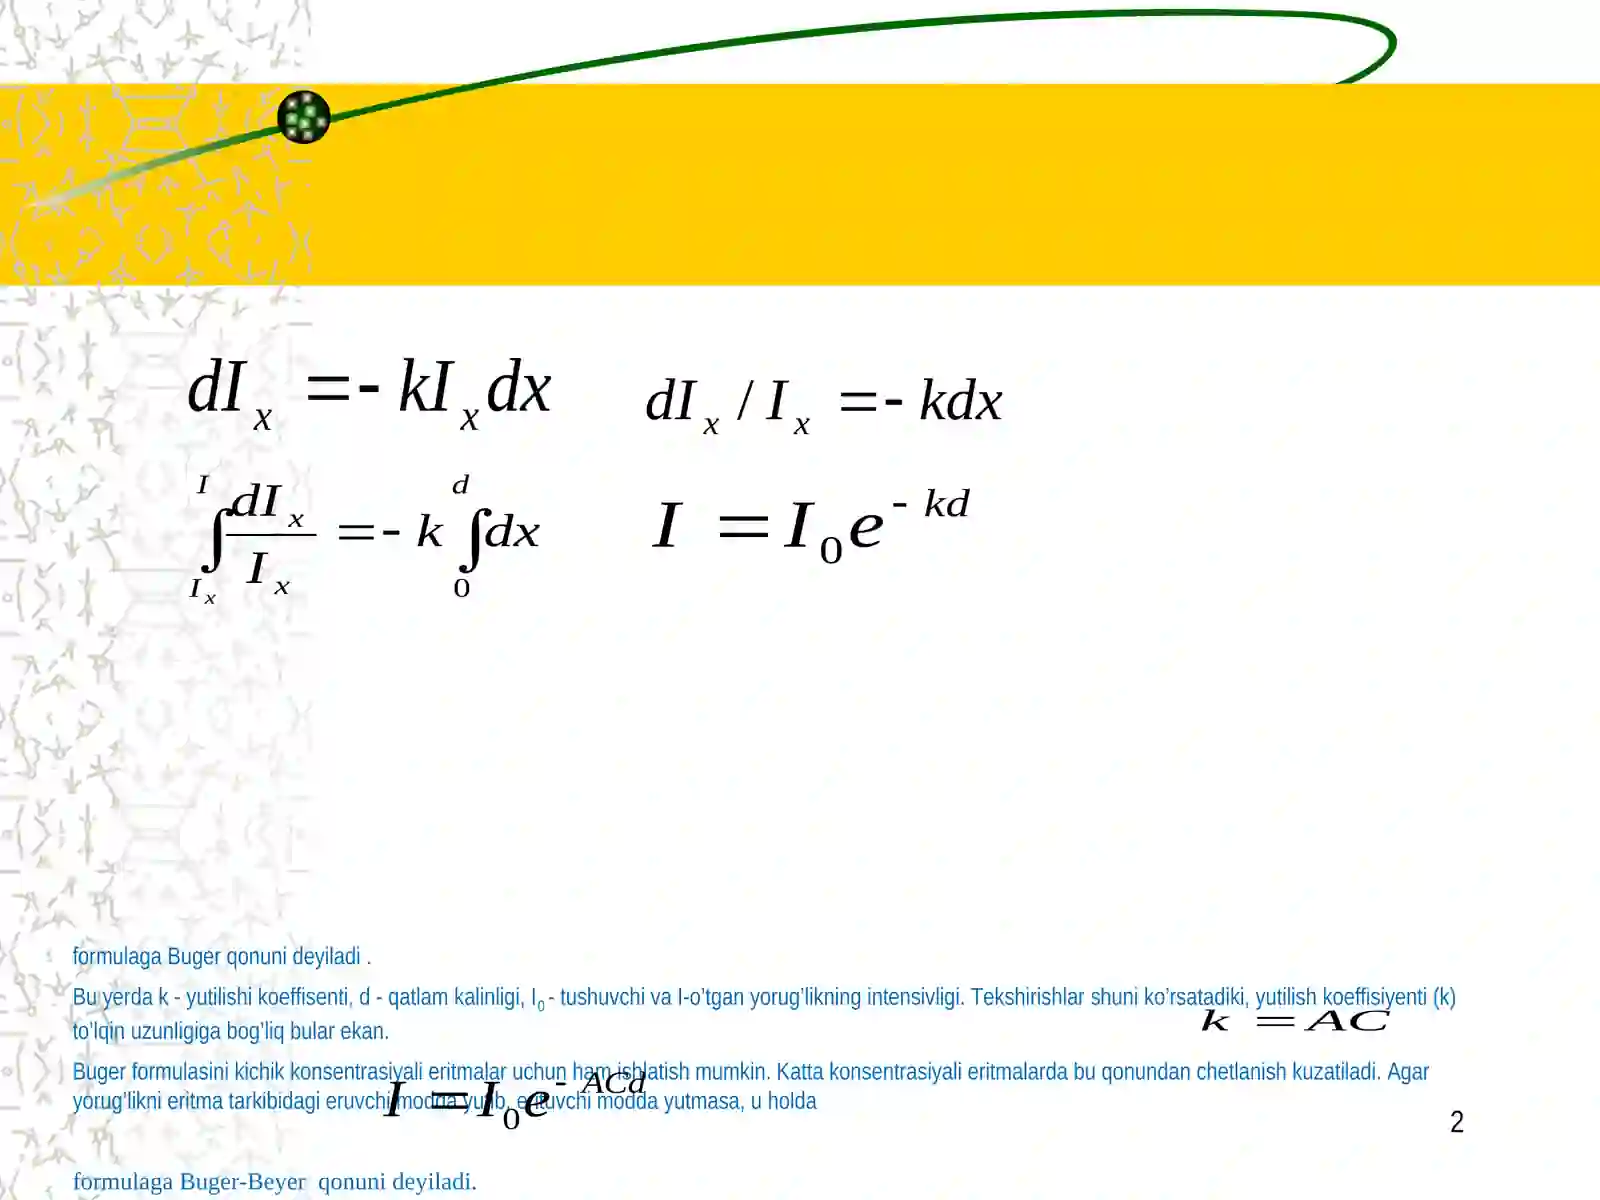 dI_x = - kI_x dx
dI_x / I_x = - kdx
∫_{I_x}^{I} dI_x / I_x = - k ∫_0^d dx
I = I_0 e^{- kd}
formulaga Buger qonuni deyiladi .
Bu yerda k - yutilishi koeffisenti, d - qatlam kalinligi, I_0 - tushuvchi va I-o’tgan yorug’likning intensivligi. Tekshirishlar shuni ko’rsatadiki, yutilish koeffisiyenti (k)
k = AC
to’lqin uzunligiga bog’liq bular ekan.
Buger formulasini kichik konsentrasiyali eritmalar uchun ham ishlatish mumkin. Katta konsentrasiyali eritmalarda bu qonundan chetlanish kuzatiladi. Agar
I = I_0 e^{- ACd}
yorug’likni eritma tarkibidagi eruvchi modda yutib, erituvchi modda yutmasa, u holda
2
formulaga Buger-Beyer qonuni deyiladi.